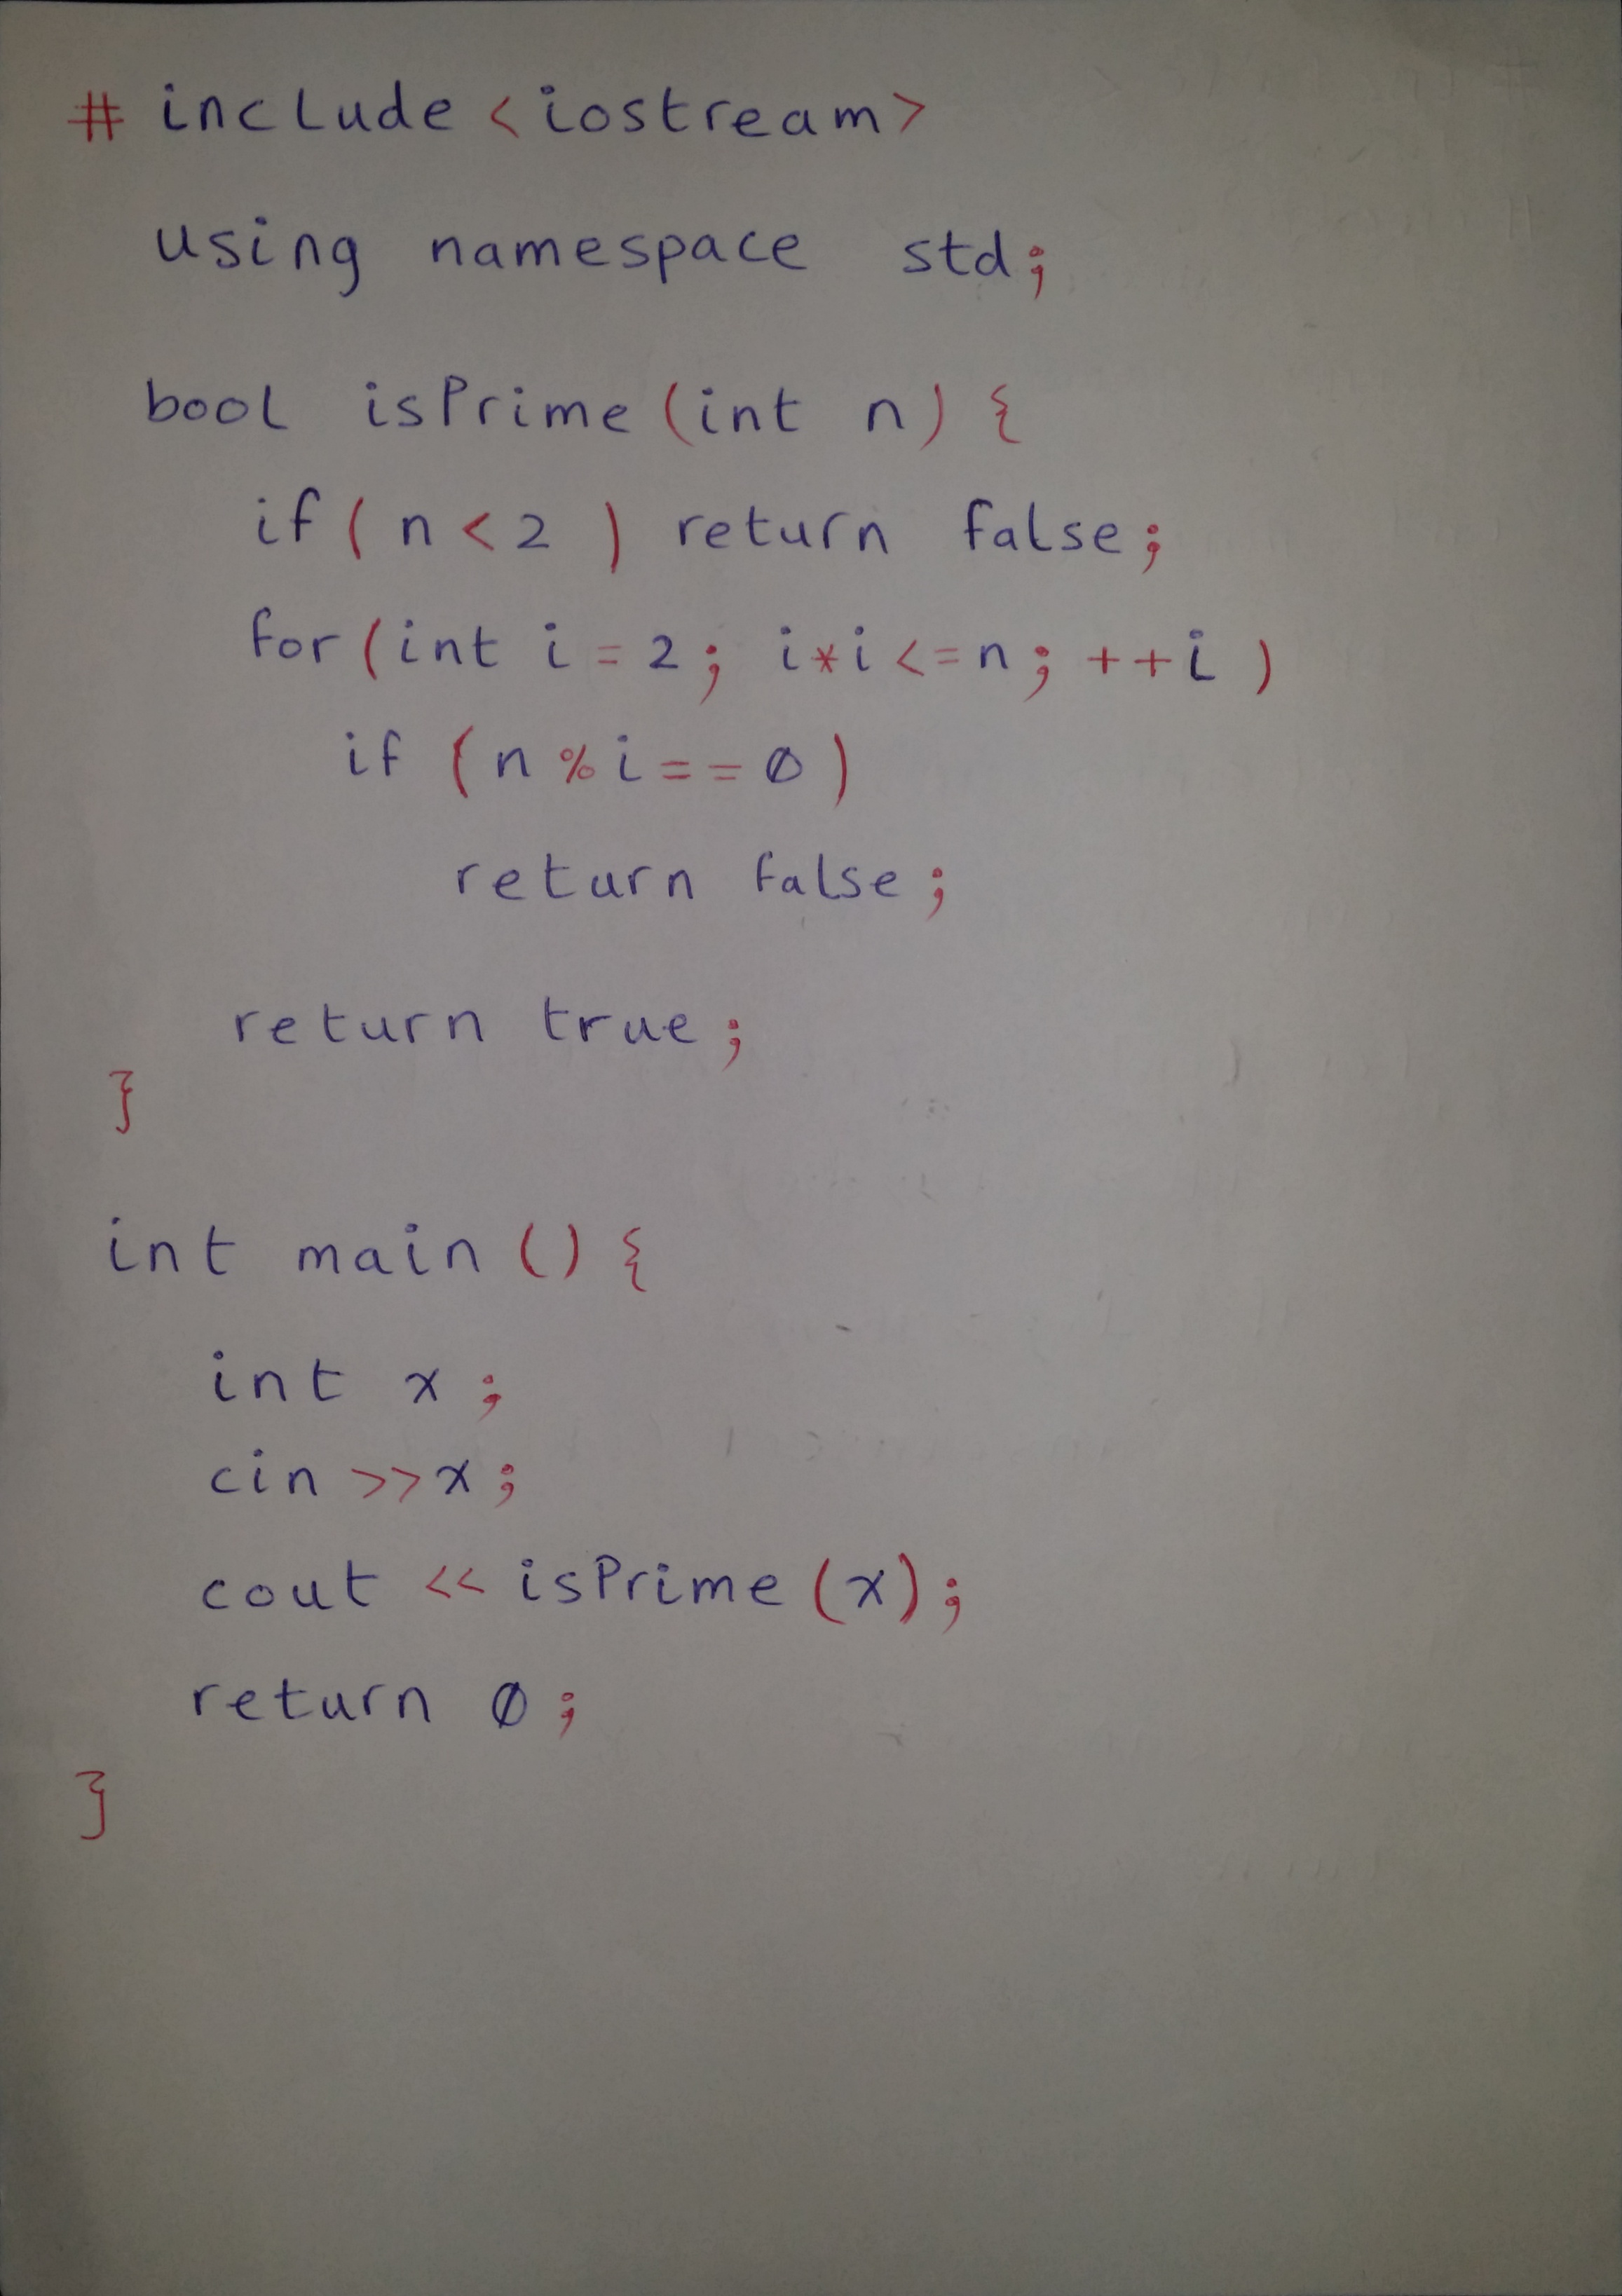 # include <iostream>
using namespace std;
bool isPrime(int n) {
if ( n < 2 ) return false;
for (int i = 2; i*i <= n; ++i )
if ( n % i == 0 )
return false;
return true;
}
int main () {
int x ;
cin >> x ;
cout << isPrime (x) ;
return 0 ;
}